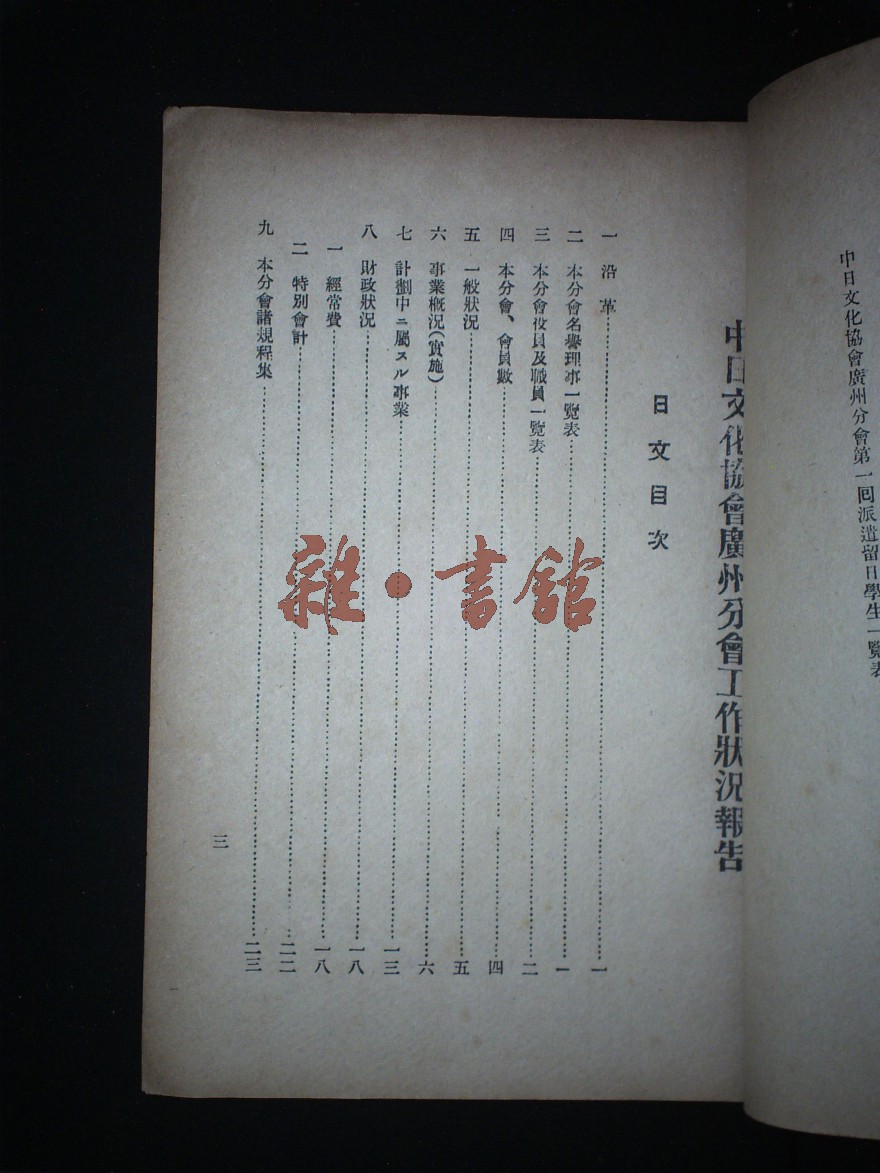 中日文化協會廣州分會第一囘派遣留日學生一覽表
中日文化協會廣州分會工作狀況報吿
日文目次
一 沿革……一
二 本分會名譽理事一覽表……一
三 本分會役員及職員一覽表……二
四 本分會、會員數……四
五 一般狀況……五
六 事業槪況(實施)……六
七 計劃中ニ屬スル事業……一三
八 財政狀況……一八
一 經常費……一八
二 特別會計……二二
九 本分會諸規程集……二三
三
雜·書館